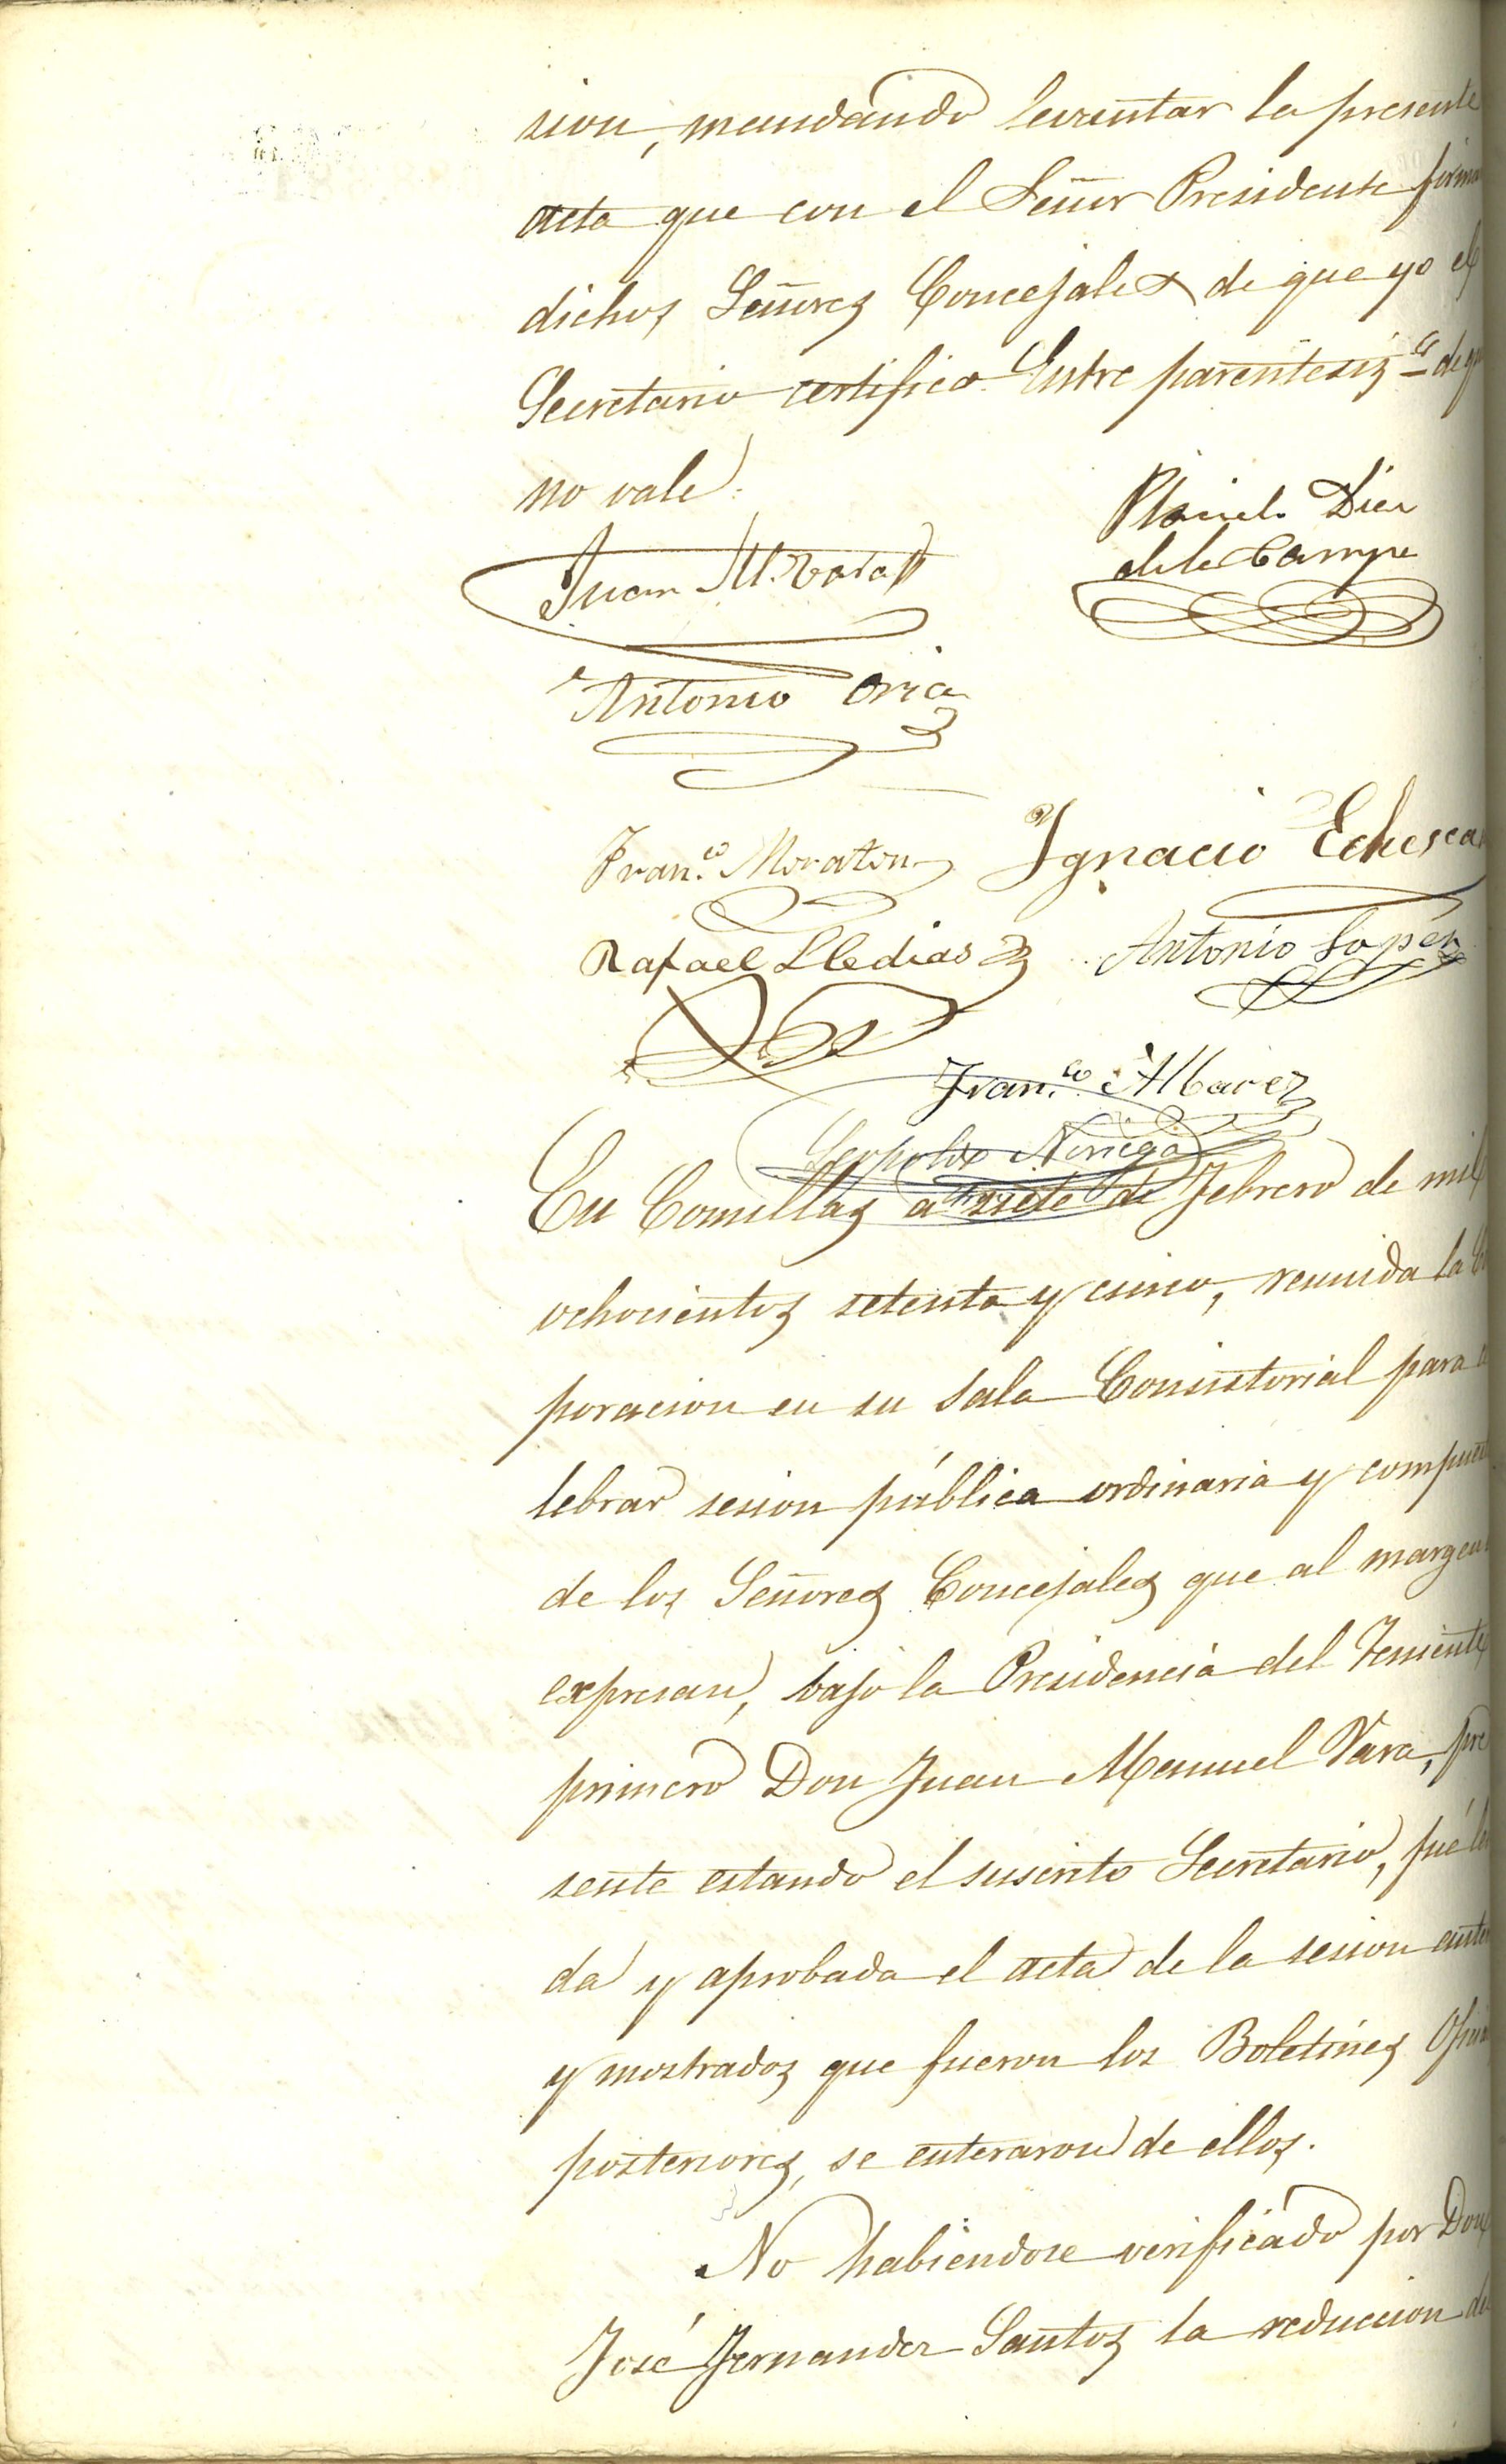 sion, mandando levantar la presente
acta que con el Señor Presidente firma
dichos Señores Concejales de que yo el
Secretario certifico. Entre parentesis "de q
no vale.
Placido Diez
de la Campa
Juan M. Vara
Antonio Oria
Fran.co Moraton
Ignacio Echesca
Rafael Lledias
Antonio Lopez
Fran.co Albarez
Leopoldo Noriega
En Comillas a siete de Febrero de mil
ochocientos setenta y cinco, reunida la
poracion en su Sala Consistorial para
lebrar sesion pública ordinaria y compues
de los Señores Concejales que al margen
expresan, bajo la Presidencia del Teniente
primero Don Juan Manuel Vara, pre
sente estando el suscrito Secretario, fué
da y aprobada el acta de la sesion ante
y mostrados que fueron los Boletines Ofici
posteriores, se enteraron de ellos.
No habiendose verificado por Don
José Fernandez Santos la reduccion de